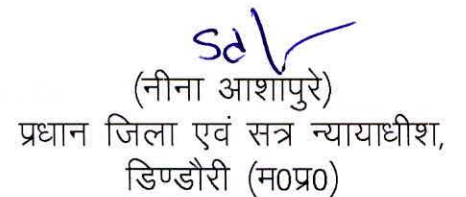 Sd
(नीना आशापुरे)
प्रधान जिला एवं सत्र न्यायाधीश,
डिण्डौरी (म0प्र0)